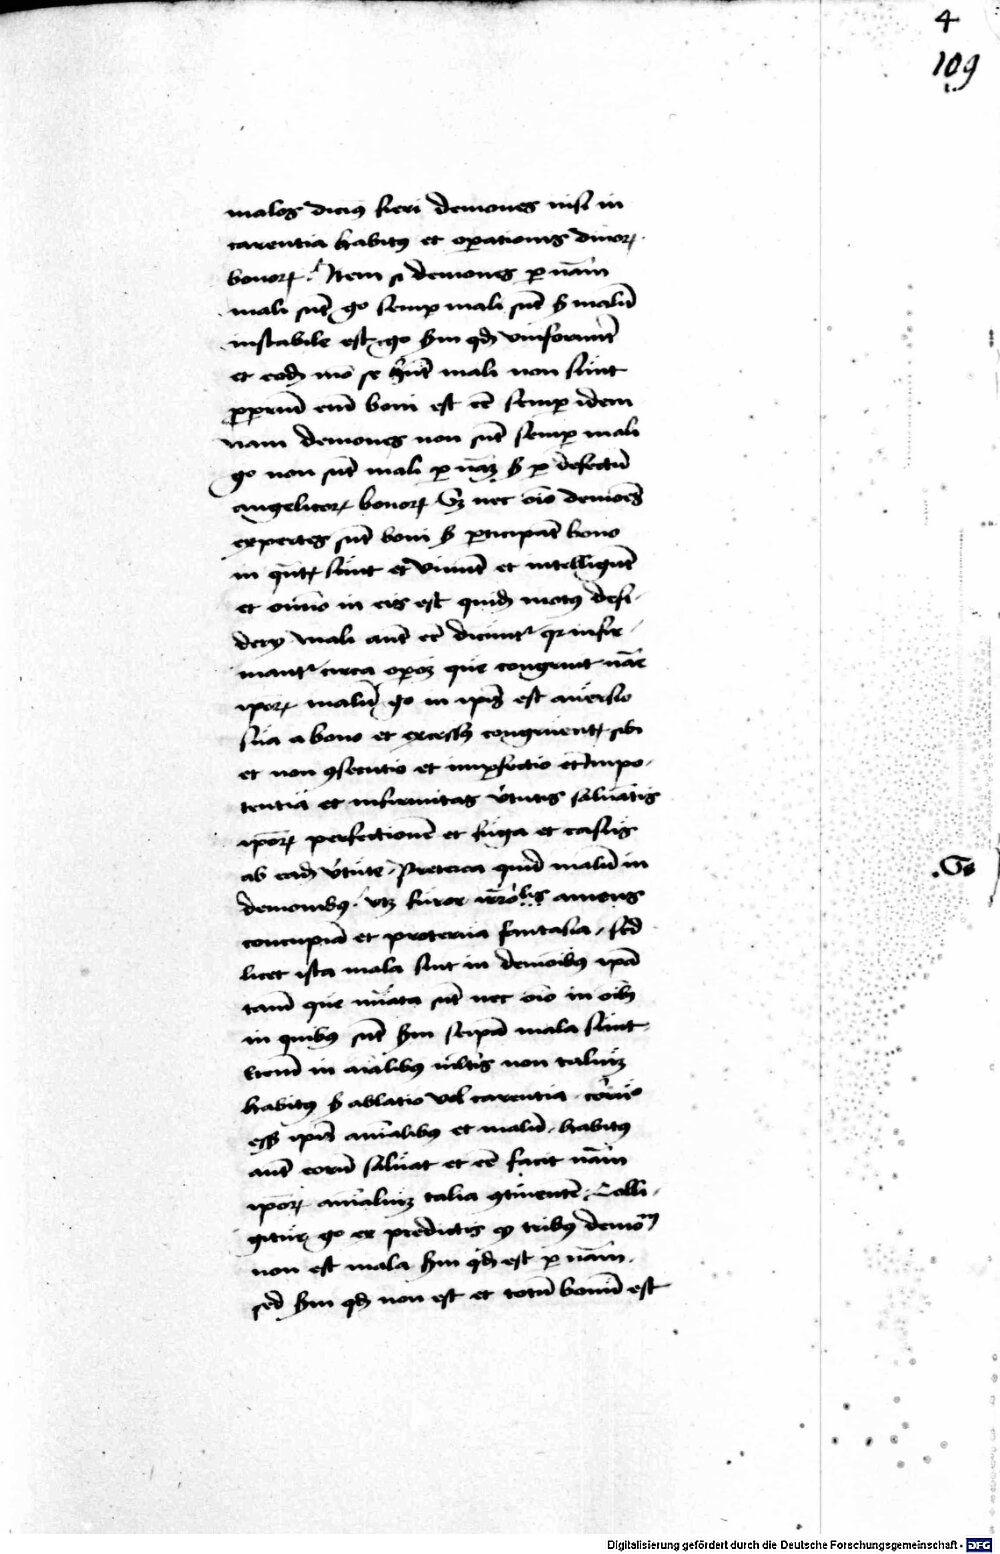 4
109
malos dicimus fieri demones nisi in
carentia habitus et operationis divinorum
bonorum. Item si demones per naturam
mali sunt ergo semper mali sunt sed malum
instabile est ergo secundum quod uniformiter
et eodem modo se habent mali non sunt
proprium enim boni est esse semper idem
nam demones non sunt semper mali
ergo non sunt mali per naturam sed per defectum
angelicorum bonorum nec omnino demones
expertes sunt boni sed participant bono
in quantum sunt et vivunt et intelligunt
et omnino in eis est quidam motus desi-
derii mali autem esse dicuntur quia infir-
mantur circa operationem que congruit nature
ipsorum malum ergo in ipsis est aversio
sua a bono et excessus congruentium sibi
et non consecutio et imperfectio et impo-
tentia et infirmitas virtutis salvantis
ipsorum perfectionem et fuga et casus
ab eadem virtute. Preterea quid malum in
demonibus. furor irrationalis amens
concupiscentia et proterva fantasia. sed
licet ista mala sint in demonibus
tamen que sunt nec omnino in omnibus
in quibus sunt secundum seipsa mala sunt
etenim in animalibus multis non talium
habitus sed ablatio vel carentia
esset ipsis animalibus et malum. habitus
autem eorum salvat et esse facit naturam
ipsorum animalium talia continentem. Colli-
gitur ergo ex predictis quod tribus demonum
non est mala secundum quod est per naturam.
sed secundum quod non est et totum bonum est
Digitalisierung gefördert durch die Deutsche Forschungsgemeinschaft - DFG